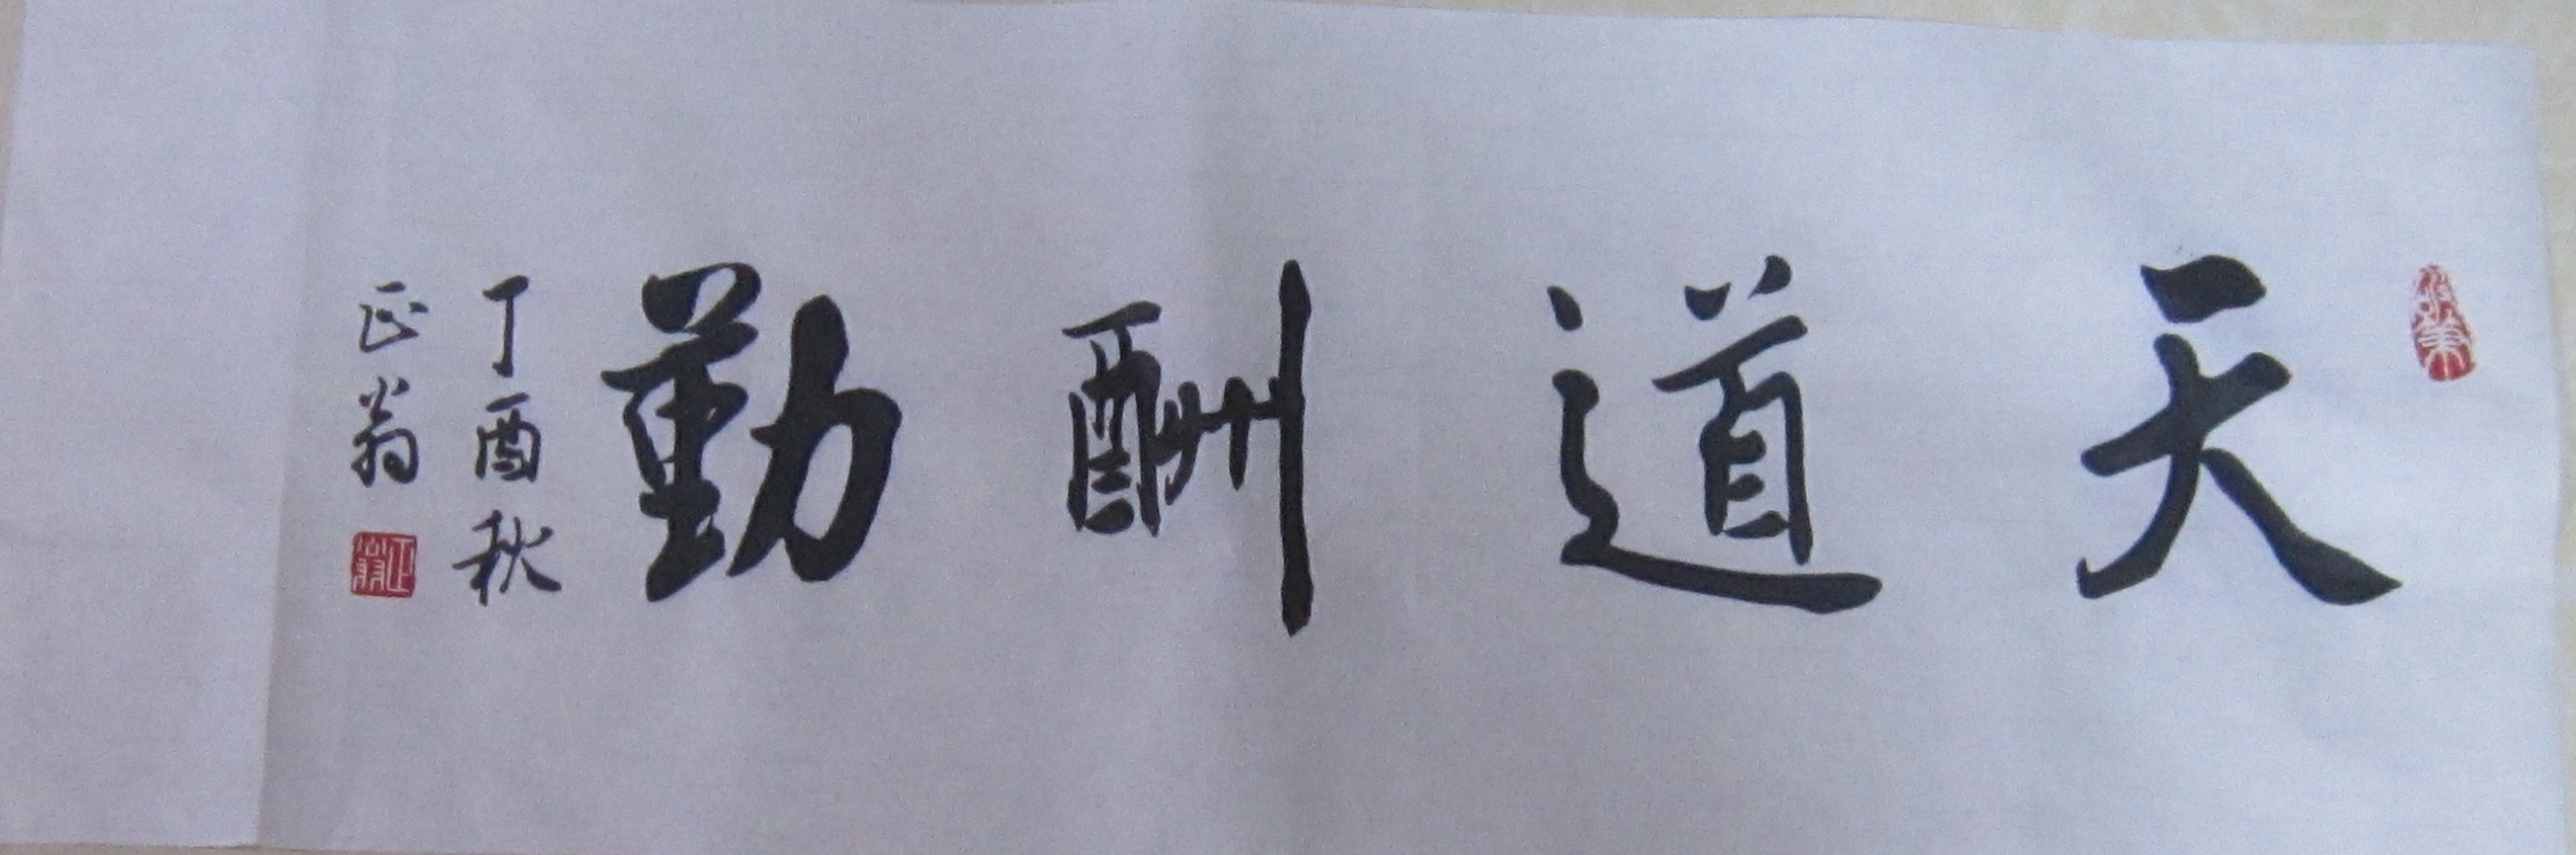 天道酬勤
丁酉秋
正翁
正翁